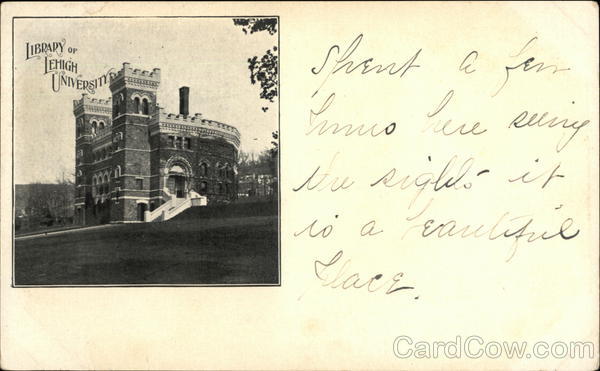 LIBRARY OF
LEHIGH
UNIVERSITY
Spent a few
here seeing
the sights it
is a beautiful
Place.
CardCow.com